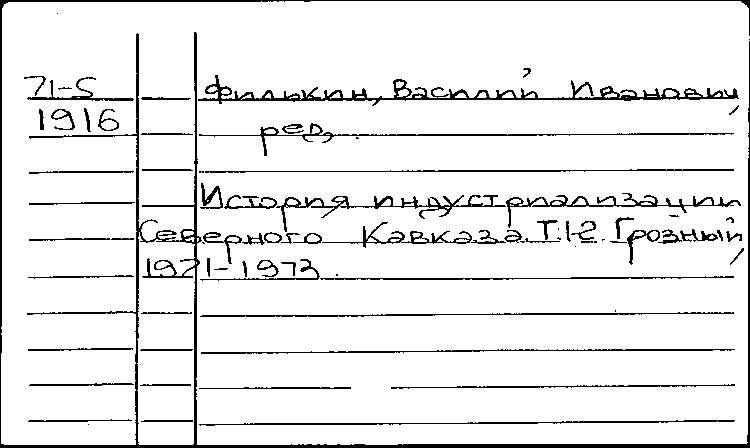 71-5 Филькин, Василий Иванович,
1916 ред.
История индустриализации
Северного Кавказа. Т.1-2. Грозный,
1971-1973.